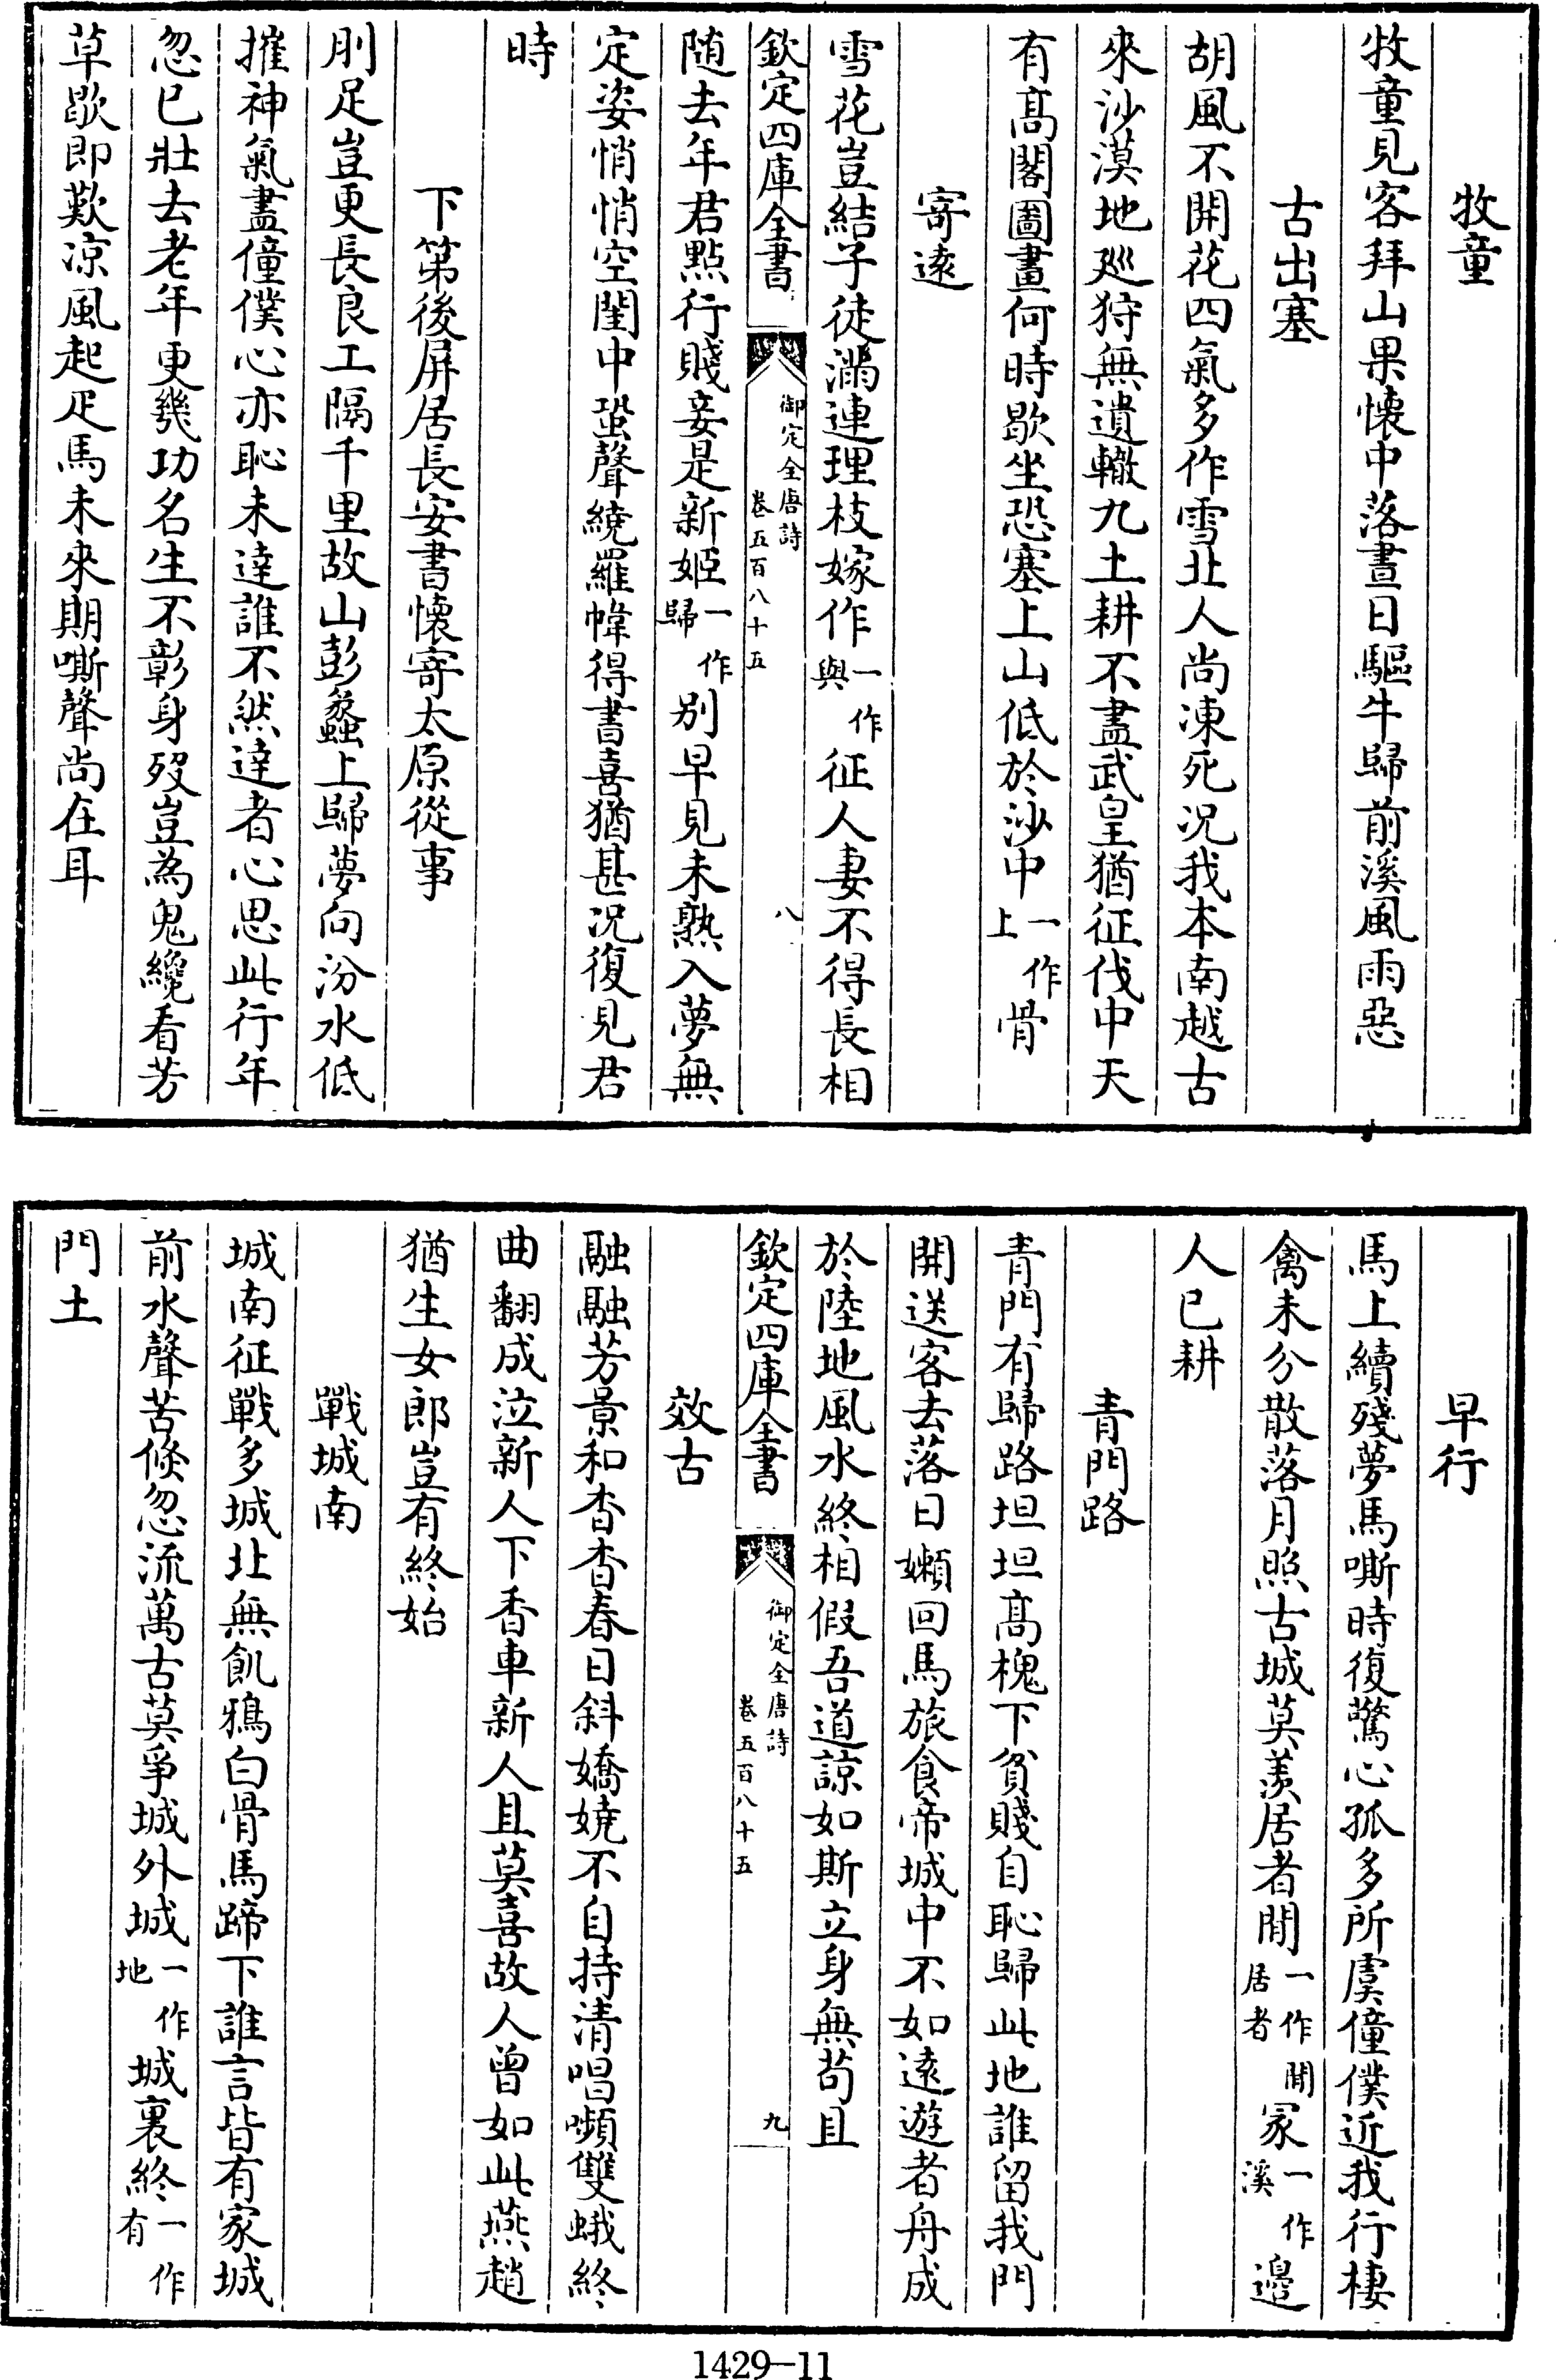 牧童
牧童見客拜山果懷中落晝日驅牛歸前溪風雨惡
古出塞
胡風不開花四氣多作雪北人尚凍死况我本南越古
來沙漠地巡狩無遺轍九土耕不盡武皇猶征伐中天
有髙閣圖畫何時歇坐恐塞上山低於沙中一作上骨
寄逺
雪花豈結子徒滿連理枝嫁作一作與征人妻不得長相
欽定四庫全書 御定全唐詩 卷五百八十五 八
随去年君㸃行賤妾是新姬一作歸别早見未熟入夢無
定姿悄悄空閨中蛩聲繞羅幃得書喜猶甚况復見君
時
下第後屏居長安書懷寄太原從事
刖足豈更長良工隔千里故山彭蠡上歸夢向汾水低
摧神氣盡僮僕心亦恥未達誰不然達者心思此行年
忽已壯去老年更幾功名生不彰身歿豈為鬼纔看芳
草歇即歎凉風起疋馬未來期嘶聲尚在耳
早行
馬上續殘夢馬嘶時復驚心孤多所虞僮僕近我行棲
禽未分散落月照古城莫羨居者閒一作居者閒冡一作溪邉
人已耕
青門路
青門有歸路坦坦髙槐下貧賤自恥歸此地誰留我門
開送客去落日嬾回馬旅食帝城中不如逺遊者舟成
於陸地風水終相假吾道諒如斯立身無苟且
欽定四庫全書 御定全唐詩 卷五百八十五 九
效古
融融芳景和杳杳春日斜嬌嬈不自持清唱嚬雙蛾終
曲翻成泣新人下香車新人且莫喜故人曾如此燕趙
猶生女郎豈有終始
戰城南
城南征戰多城北無飢鴉白骨馬蹄下誰言皆有家城
前水聲苦倐忽流萬古莫爭城外城一作地城裏終一作有
門土
1429-11